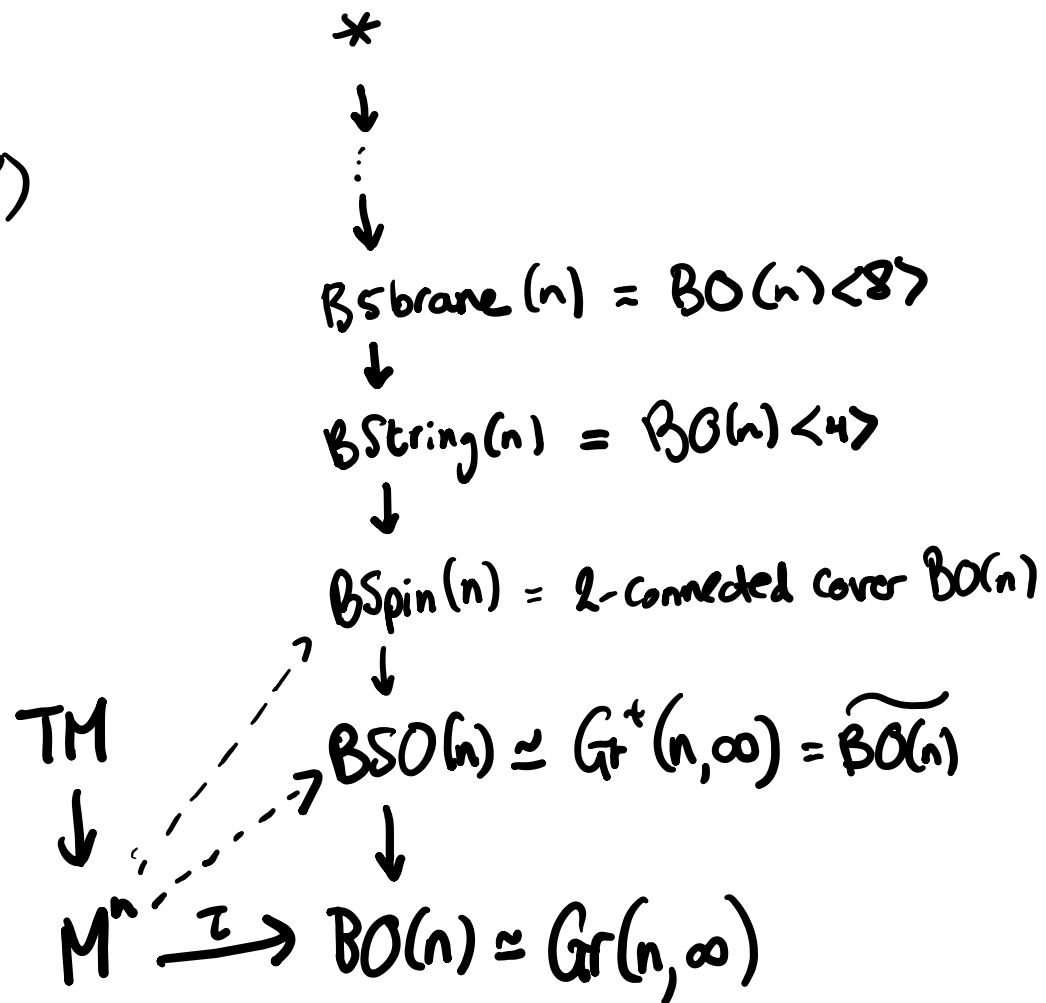 *
)
BSbrane(n) = BO(n)<8>
BString(n) = BO(n)<4>
BSpin(n) = 2-connected cover BO(n)
TM
BSO(n) ≃ Gr⁺(n,∞) = \widetilde{BO(n)}
Mⁿ τ BO(n) ≃ Gr(n,∞)